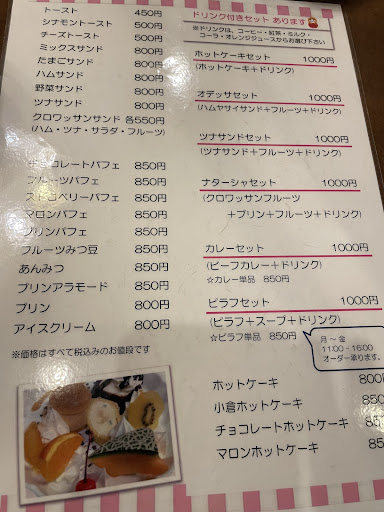 トースト 450円
シナモントースト 500円
チーズトースト 500円
ミックスサンド 800円
たまごサンド 800円
ハムサンド 800円
野菜サンド 800円
ツナサンド 800円
クロワッサンサンド 各550円
(ハム・ツナ・サラダ・フルーツ)
チョコレートパフェ 850円
フルーツパフェ 850円
ストロベリーパフェ 850円
マロンパフェ 850円
プリンパフェ 850円
フルーツみつ豆 850円
あんみつ 850円
プリンアラモード 850円
プリン 800円
アイスクリーム 800円
※価格はすべて税込みのお値段です
ドリンク付きセット あります
※ドリンクは、コーヒー・紅茶・ミルク・
コーラ・オレンジジュースからお選び下さい
ホットケーキセット 1000円
(ホットケーキ+ドリンク)
オデッサセット 1000円
(ハムヤサイサンド+フルーツ+ドリンク)
ツナサンドセット 1000円
(ツナサンド+フルーツ+ドリンク)
ナターシャセット 1000円
(クロワッサンフルーツ
+プリン+フルーツ+ドリンク)
カレーセット 1000円
(ビーフカレー+ドリンク)
☆カレー単品 850円
ピラフセット 1000円
(ピラフ+スープ+ドリンク)
☆ピラフ単品 850円
月~金
11:00-16:00
オーダー承ります。
ホットケーキ 800
小倉ホットケーキ 85
チョコレートホットケーキ
マロンホットケーキ